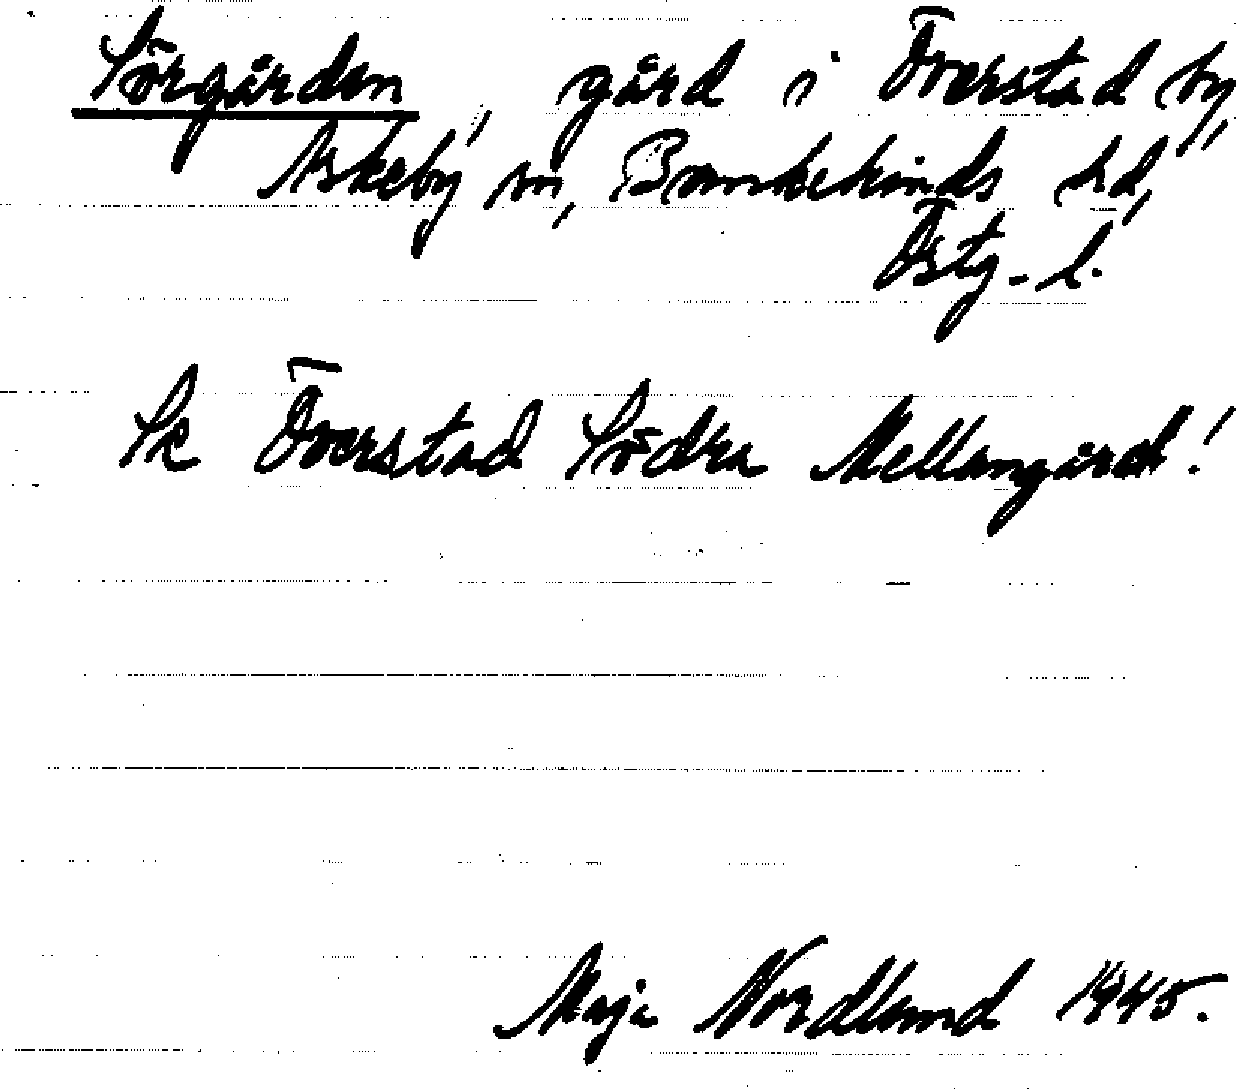 Sörgården, gård i Överstad by,
Askeby sn, Bankekinds hd,
Östg. l.
Se Överstad Södra Mellangård!
Maja Nordlund 1945.